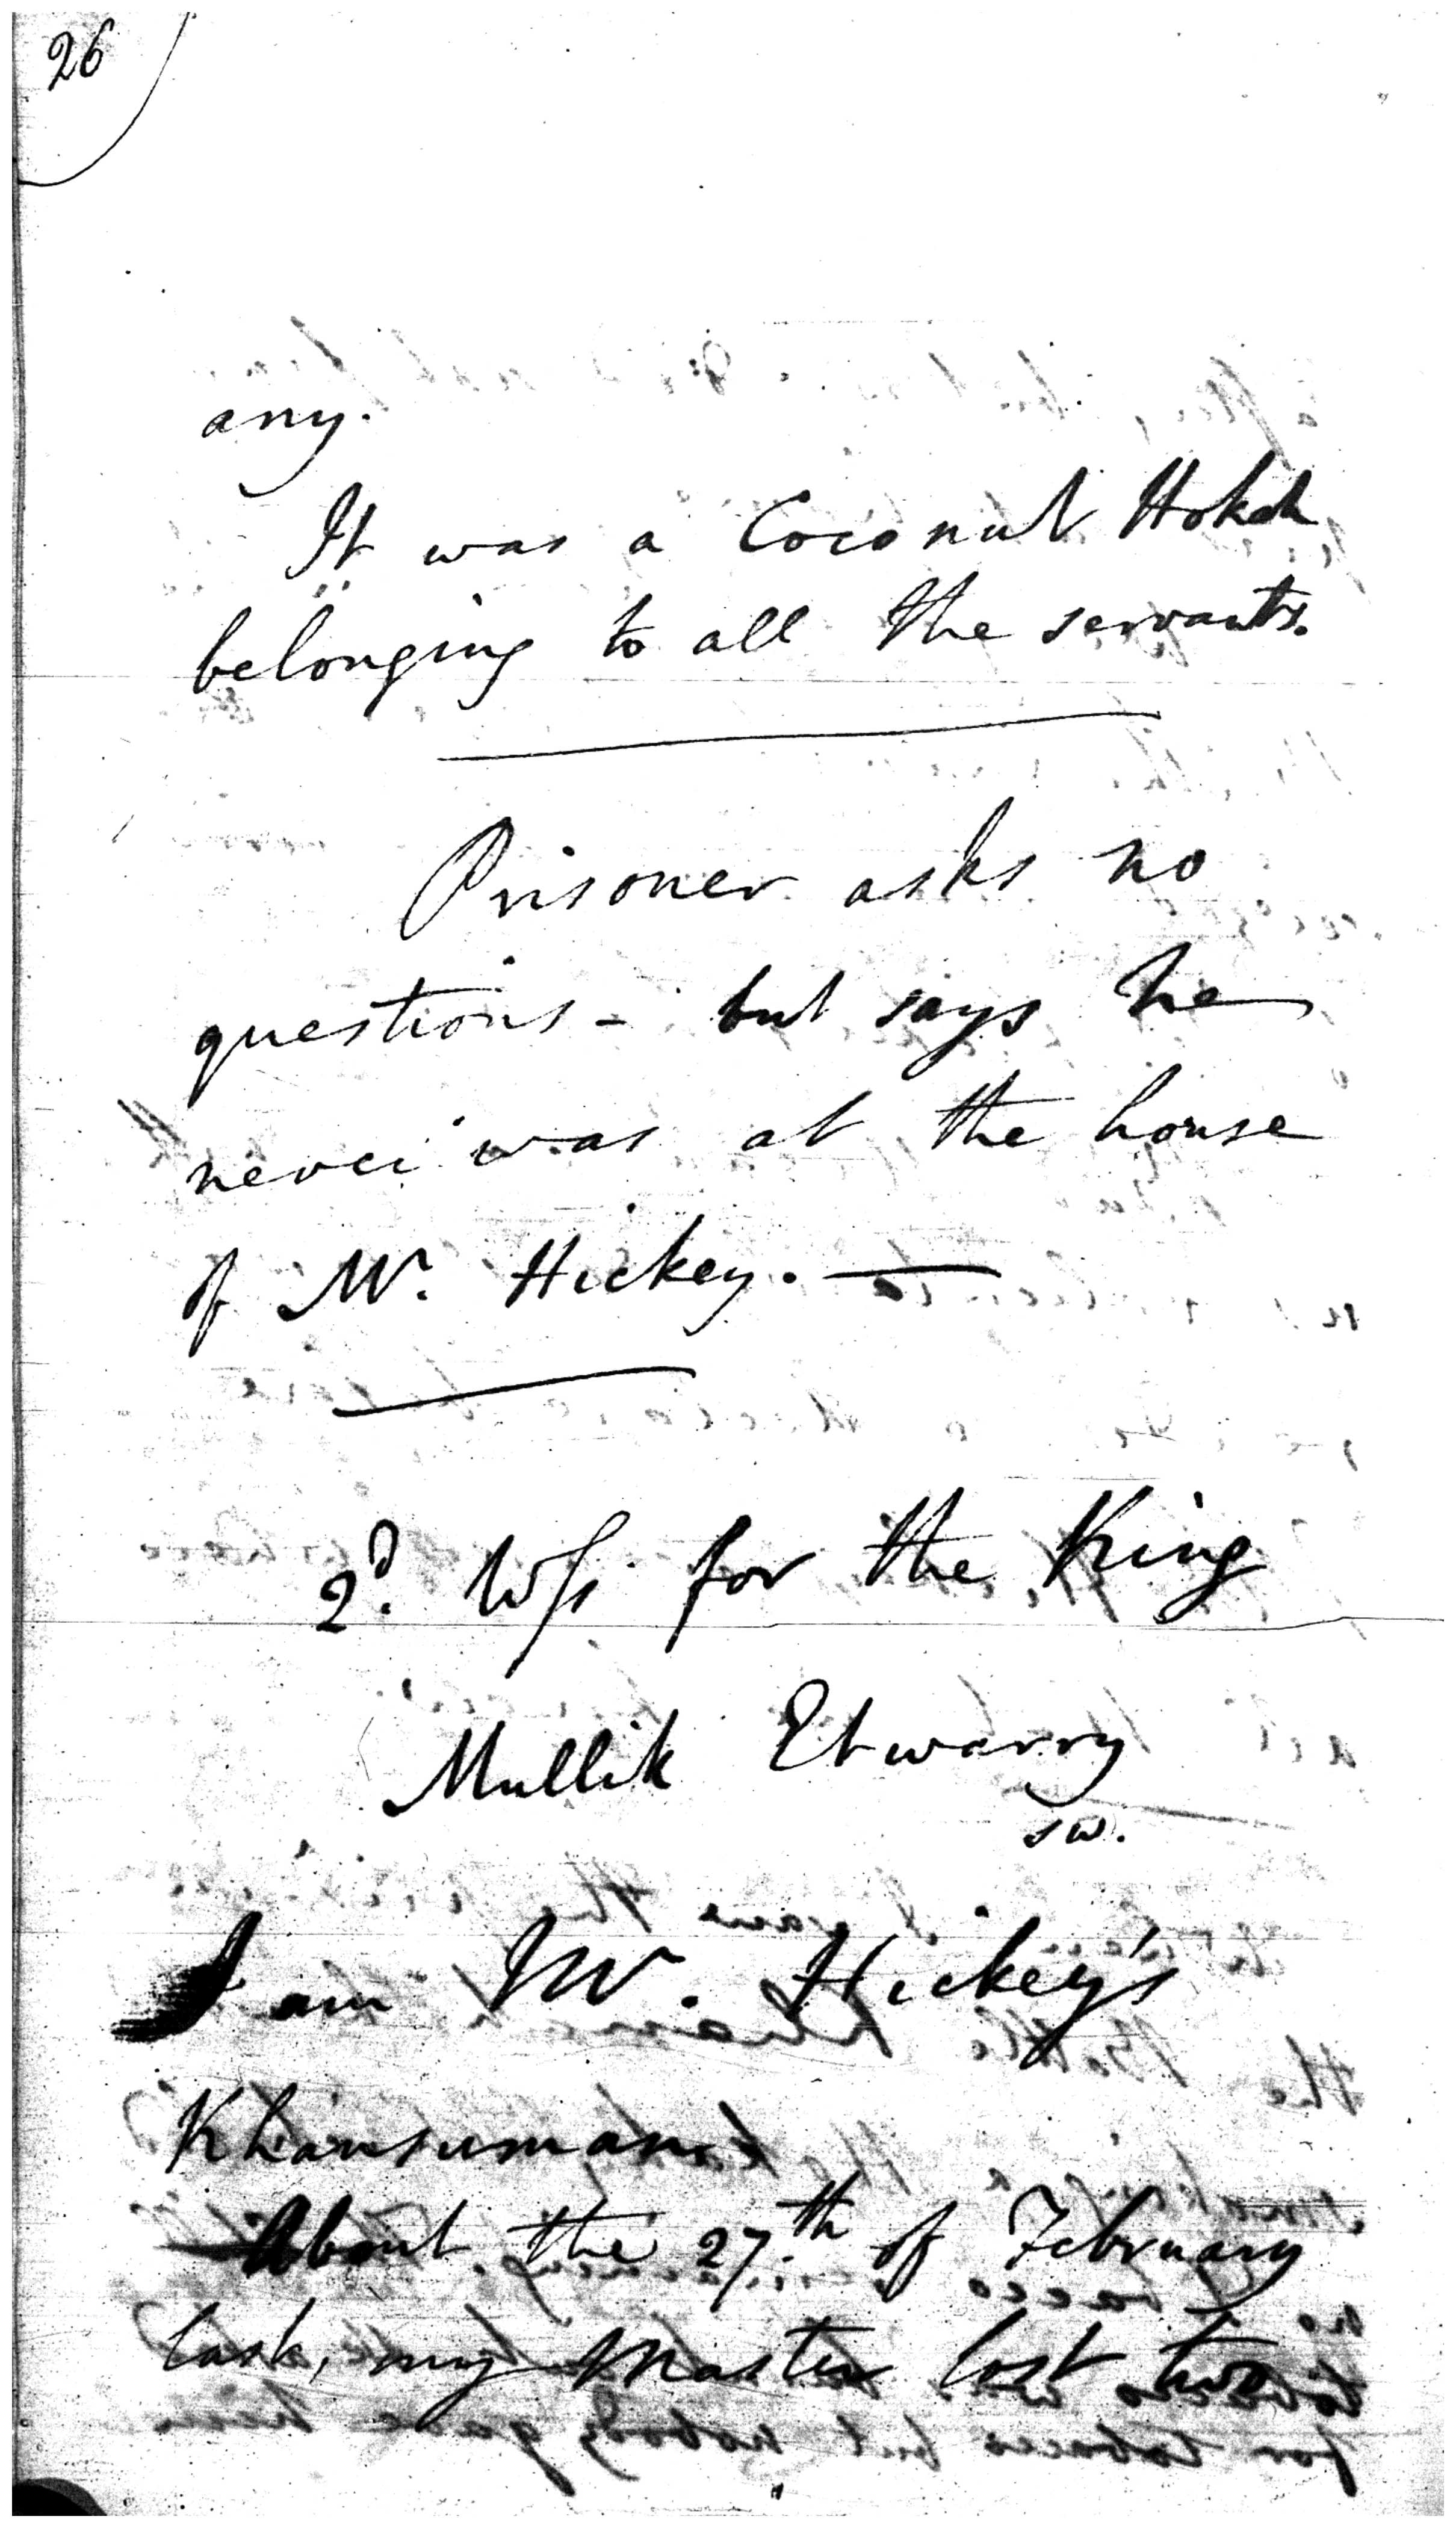 26
any.
It was a Coconut Hokah
belonging to all the servants.
Prisoner asks no
questions - but says he
never was at the house
of Mr. Hickey. —
2d. Wss for the King
Mullik Etwarry
sw.
I am Mr. Hickey's
Khansuman.
About the 27.th of February
last, my Master lost two